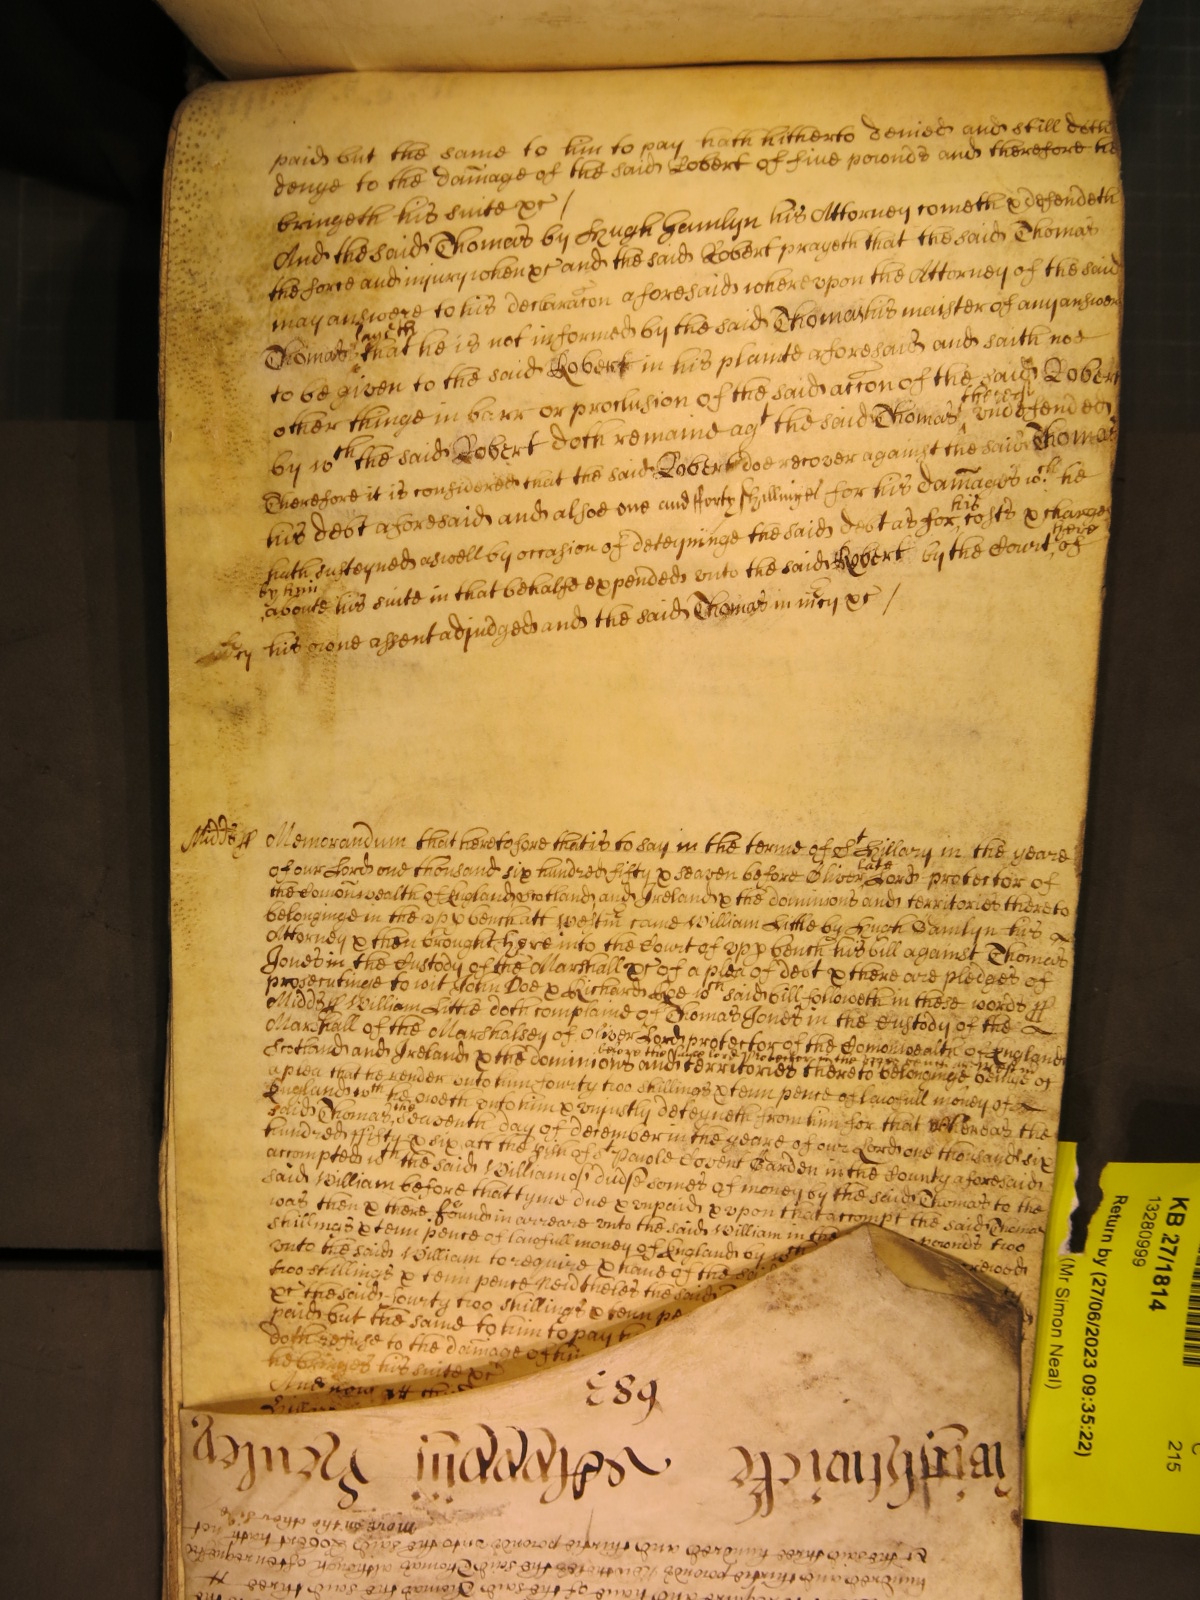 paid but the same to him to pay hath hitherto denied and still doth
denye to the damage of the said Robert of five pounds and therefore he
bringeth his suite xc /
And the said Thomas by Hugh Hamlyn his Attorney cometh & defendeth
the force and injury when xc and the said Robert prayeth that the said Thomas
may answere to his declaracon aforesaid whereupon the Attorney of the said
Thomas sayeth that he is not informed by the said Thomas his maister of any answer
to be given to the said Robert in his plainte aforesaid and saith noe
other thinge in barr or preclusion of the said accon of the said Robert
by wch the said Robert doth remaine agt the said Thomas therein undefended
Therefore it is considered that the said Robert doe recover against the said Thomas
his debt aforesaid and alsoe one and forty shillinges for his damages wch he
hath susteyned aswell by occasion of deteyninge the said debt as for his costs & charges
by him aboute his suite in that behalfe expended unto the said Robert by the Court here of
mcy his owne assent adjudged and the said Thomas in mcy xc /
Midds ff Memorandum that heretofore that is to say in the terme of St Hillary in the yeare
of our Lord one thousand six hundred fifty & seaven before Oliver late Lord protector of
the Comonwealth of England Scotland and Ireland & the dominions and territories thereto
belonginge in the upp bench att Westm came William Little by Hugh Hamlyn his
Attorney & then brought here into the Court of upp bench his bill against Thomas
Jones in the Custody of the Marshall xc of a plea of debt & there are pledges of
prosecutinge to wit John Doe & Richard Roe wch said bill followeth in these words ff
Midds ff William Little doth complaine of Thomas Jones in the Custody of the
Marshall of the Marshalsey of Oliver Lord protector of the Comonwealth of England
Scotland and Ireland & the dominions and territories thereto belonginge beinge of
a plea that he render unto him fourty two shillings & tenn pence of lawfull money of
England wch he oweth unto him & unjustly deteyneth from him for that whereas the
said Thomas the seaventh day of december in the yeare of our Lord one thousand six
hundred fifty & six att the psh of St Pawle Covent Garden in the County aforesaid
accompted wth the said William of divse somes of money by the said Thomas to the
said William before that tyme due & unpaid & upon that accompt the said Thomas
was then & there found in arreare unto the said William in the pounds two
shillings & tenn pence of lawfull money of England by wch
unto the said William to require & have of the
two shillings & tenn pence Neverthelesse the said
xc the said fourty two shillings & tenn pe
paid but the same to him to pay
doth refuse to the damage of him
he bringes his suite xc
And now att
683
Wightwicke
more on the other side
of the said three hundred and thirtie pounds unto the said Robert hath not
hundred and thirtie pounds Neverthelesse the said Thomas although often requested
require and have of the said Thomas the said three
KB 27/1814
13280999
Return by (27/06/2023 09:35:22)
(Mr Simon Neal)
215